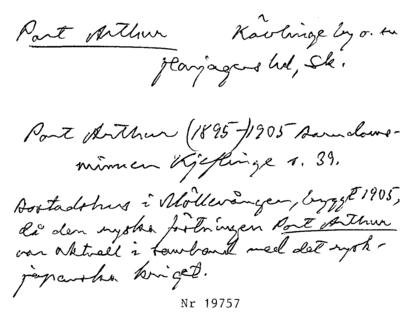 Port Arthur Kävlinge by o. sn
Harjagers hd, Sk.
Port Arthur (1895-)1905 Barndoms-
minnen Kjeflinge s. 39.
Bostadshus i Möllevången, byggt 1905,
då den ryska fästningen Port Arthur
var aktuell i samband med det rysk-
japanska kriget.
Nr 19757